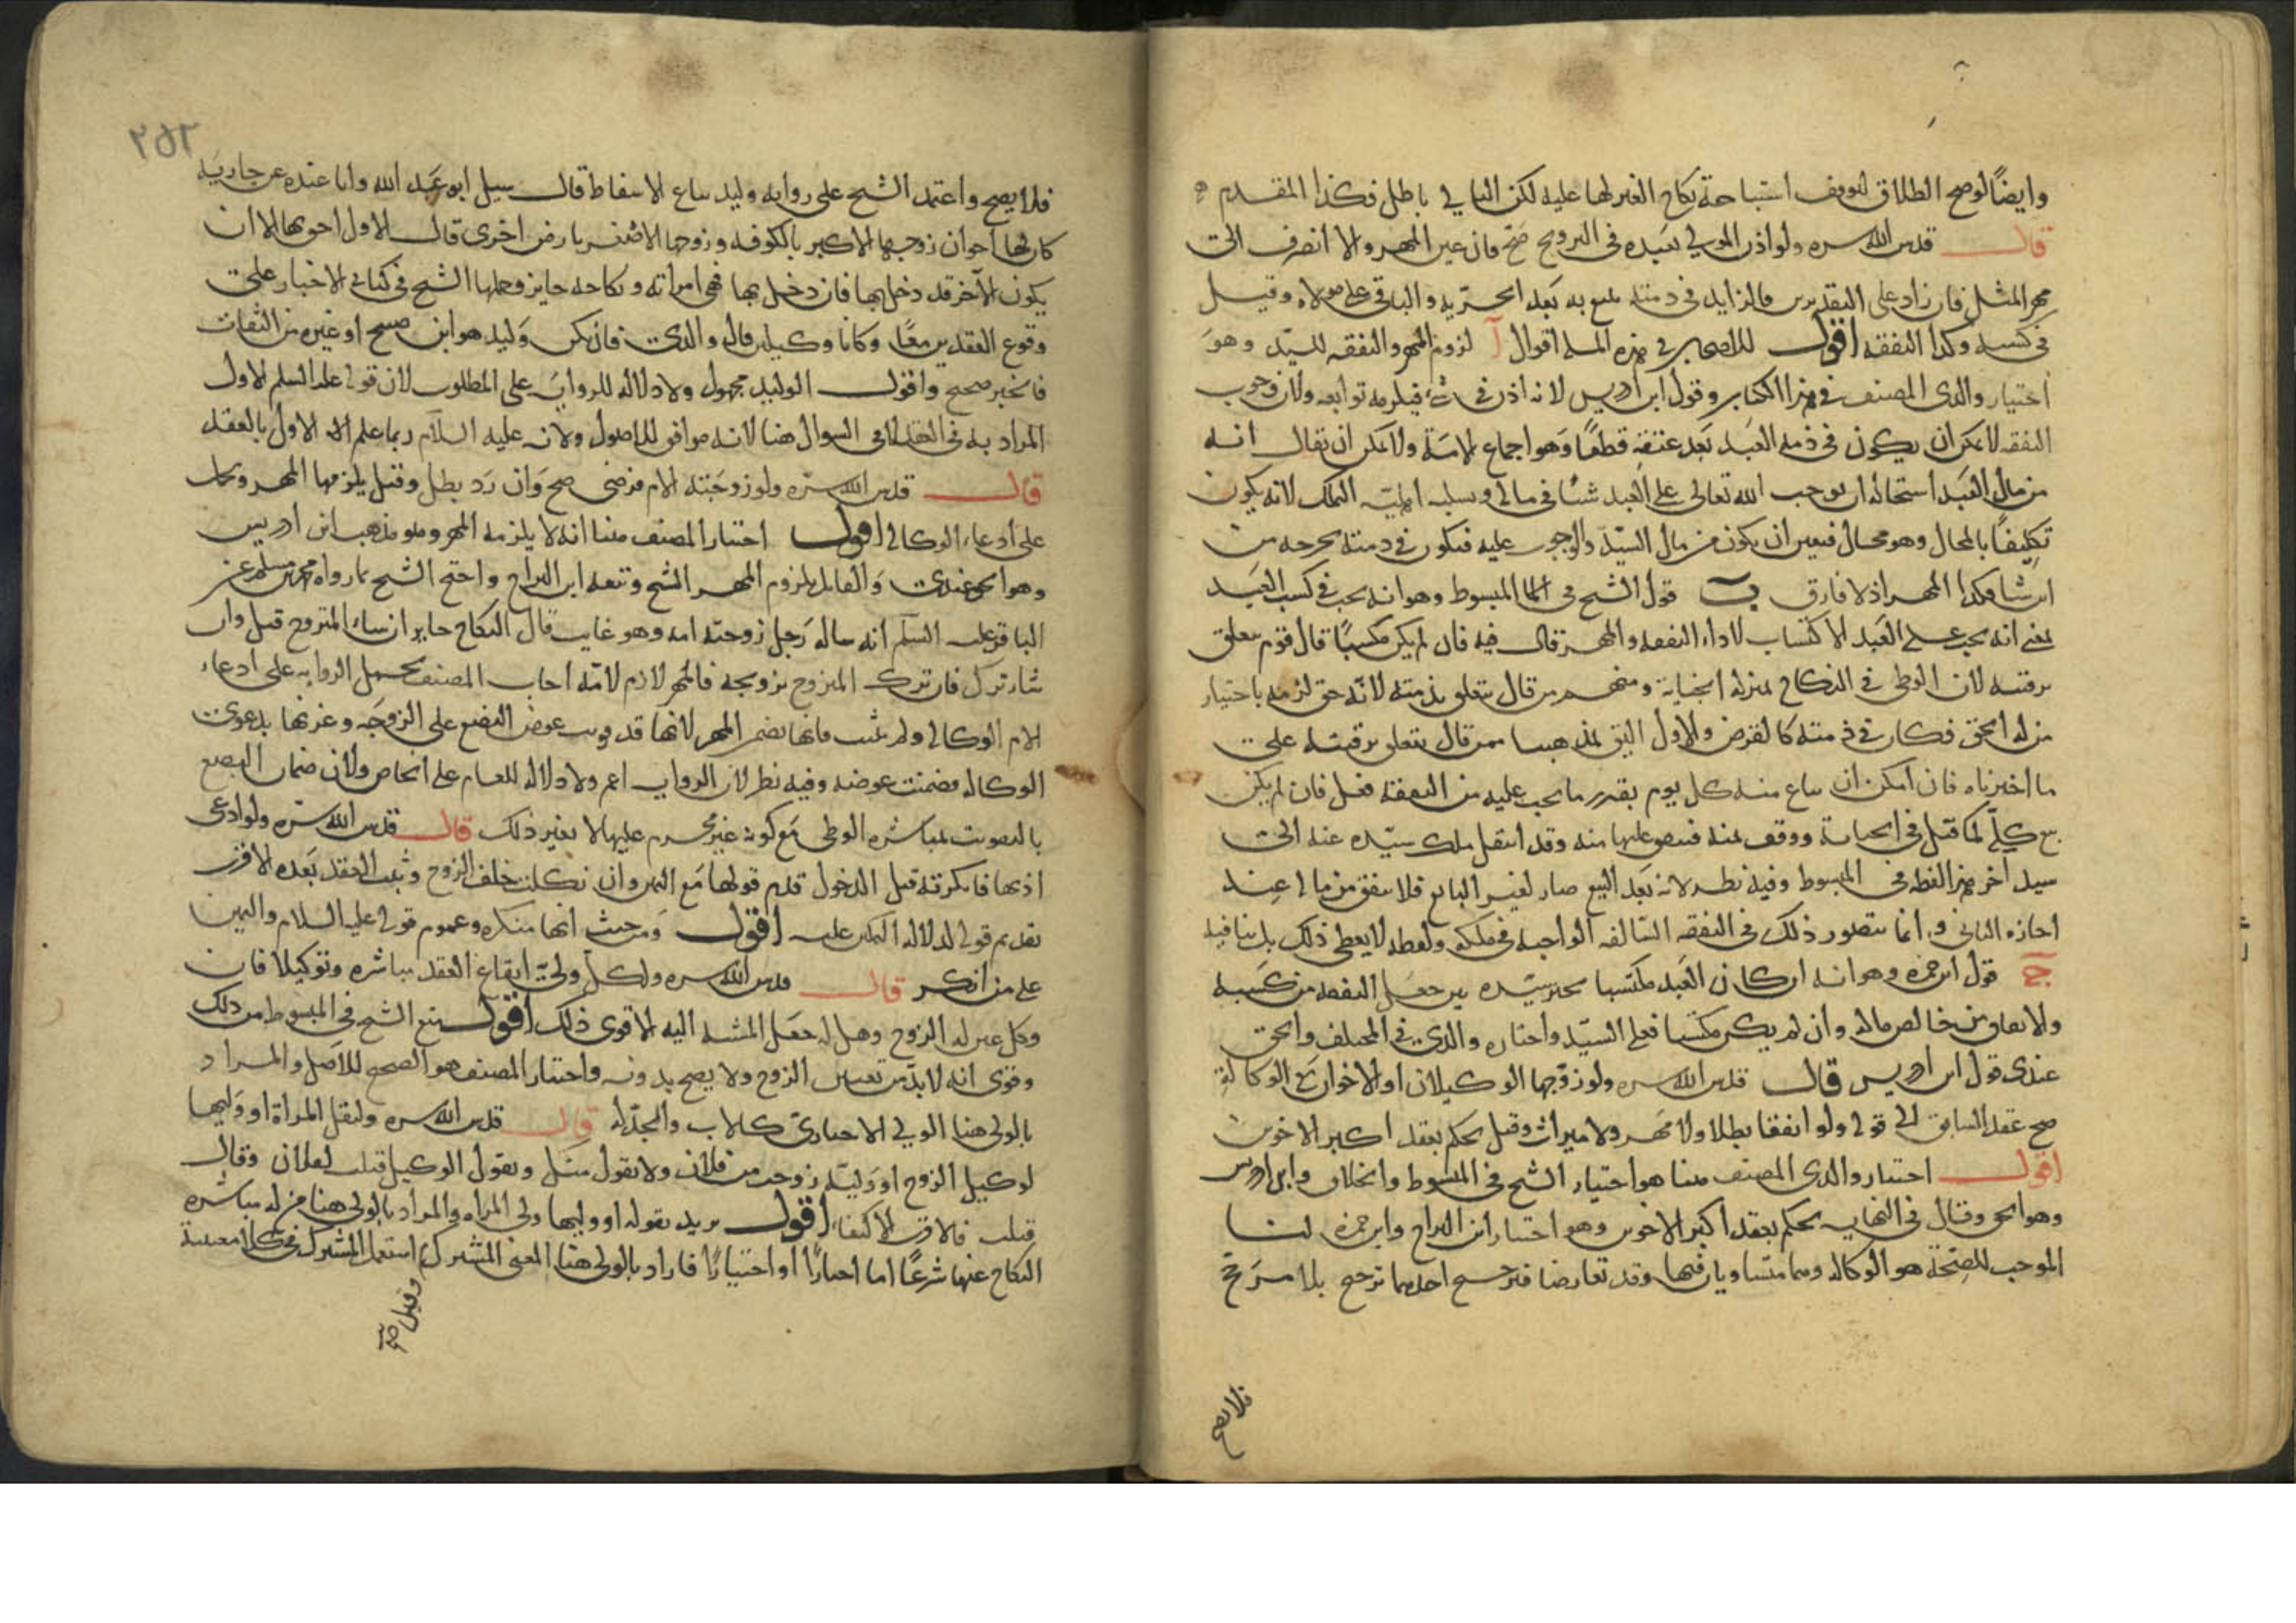 وايضاً لوصح الطلاق لتوقف استباحة نكاح الغير لها عليه لكن التالي باطل فكذا المقدم
قال قدس الله سره ولو اذن المولى لعبده في التزويج صح فان عين المهر والا انصرف الى
مهر المثل فان زاد على التقديرين فالزايد في ذمته يتبع به بعد الحرية والباقي على مولاه وقيل
في كسبه وكذا النفقه اقول للاصحاب في هذه المسله اقوال آ لزوم المهر والنفقه للسيد وهو
اختيار والدى المصنف في هذا الكتاب وقول ابن ادريس لانه اذن في شئ فيلزمه توابعه ولان وجوب
النفقه لا يمكن ان يكون في ذمه العبد بعد عتقه قطعًا وهو اجماع الامة ولا يمكن ان يقال انه
من مال العبد استحالة ان يوجب الله تعالى على العبد شيئا في مالى وسلبه اهليّة الملك لانه يكون
تكليفًا بالمحال وهو محال فتعين ان يكون من مال السيّد والوجوب عليه فتكون في ذمته يخرجه من
اين شا وكذا المهر اذ لا فارق ب قول الشيخ في المبسوط وهو انه يجب في كسب العبد
بمعنى انه يجب على العبد الاكتساب لاداء النفقه والمهر قال فيه فان لم يكن مكتسبًا قال قوم يتعلق
برقبته لان الوطى في النكاح بمنزله الجناية ومنهم من قال يتعلق بذمته لانّه حق لزمه باختيار
من له الحق فكان في ذمته كالقرض والاول اليق بمذهبنا فمن قال يتعلق برقبته على
ما اخبرناه فان امكن ان يباع منه كل يوم بقدر ما يجب عليه من النفقة فعل فان لم يكن
بيع كلّه كما قيل في الجناية ووقف ثمنه فينفق عليها منه وقد انتقل ملك سيّده عنه الى
سيد آخر هذا لفظه في المبسوط وفيه نظر لانه بعد البيع صار لغير البايع فلا ينفق من مالى عند
اجازه الثانى و انما يتصور ذلك في النفقه السّالفه الواجبه في ملكه ولفظه لا يعطى ذلك بل ينافيه
ج قول ابن حمزه وهو انه ان كان العبد مكتسبا تخير سيّده بين جعل النفقه من كسبه
والانفاق من خالص ماله وان لم يكن مكتسبا فعلى السيّد واختاره والدى في المختلف والحق
عندى قول ابن ادريس قال قدس الله سره ولو زوّجها الوكيلان او الاخوان مع الوكالة
صح عقد السابق الى قولى ولو اتفقا بطلا ولا مهر ولا ميراث وقيل يحكم بعقد اكبر الاخوين
اقول اختيار والدى المصنف هنا هو اختيار الشيخ في المبسوط والخلاف وابن ادريس
وهو الحق وقال في النهايه يحكم بعقد اكبر الاخوين وهو اختيار ابن البراج وابن حمزه لنا
الموجب للصحة هو الوكاله وهما متساويان فيها وقد تعارضا فترجيح احدهما ترجيح بلا مرجح
فلا يصح
٢٥٢
فلا يصح واعتمد الشيخ على روايه وليد بياع الاسفاط قال سيل ابو عبد الله وانا عنده عن جاريه
كان لها اخوان زوجها الاكبر بالكوفه وزوجها الاصغر بارض اخرى قال الاول احق بها الا ان
يكون الآخر قد دخل بها فان دخل بها فهى امراته ونكاحه جايز وحملها الشيخ في كتابى الاخبار على
وقوع العقدين معًا وكانا وكيلين قال والدى فان يكن وليد هو ابن صبيح او غيره من الثقات
فالخبر صحيح واقول الوليد مجهول ولا دلاله للرواية على المطلوب لان قولى عليه السلم الاول
المراد به في العقد لا في السوال هنا لانه موافق للاصول ولانه عليه السلام ربما علم ان الاول بالعقد
قال قدس الله سرّه ولو زوجته الام فرضى صح وان رد بطل وقيل يلزمها المهر ويحمل
على ادعاء الوكالى اقول اختيار المصنف هنا انه لا يلزمه المهر وهو مذهب ابن ادريس
وهو الحق عندى والقايل بلزوم المهر الشيخ وتبعه ابن البراج واحتج الشيخ بما رواه محمد بن مسلم عن
الباقر عليه السلم انه ساله رجل زوجته امه وهو غايب قال النكاح جايز ان شاء المتزوج قبل وان
شاء ترك فان ترك المتزوج تزويجه فالمهر لازم لامّه اجاب المصنف بحمل الروايه على ادعاء
الام الوكالى ولم تثبت فانها تضمن المهر لانها قد فوتت عوض البضع على الزوجه وغرتها بدعوى
الوكاله فضمنت عوضه وفيه نظر لان الروايه اعم ولا دلاله للعام على الخاص ولان ضمان البضع
بالتفويت بمباشره الوطى مع كونه غير محرم عليها لا بغير ذلك قال قدس الله سرّه ولو ادعى
اذنها فانكرته قبل الدخول قدم قولها مع اليمين وان نكلت حلف الزوج وثبت العقد بعده الاقرب
تقديم قولى لدلالة التمكين عليه اقول ومن حيث انها منكره وعموم قولى عليه السلام واليمين
على من انكر قال قدس الله سره ولكل ولىّ ايقاع العقد مباشره وتوكيلا فان
وكل عين له الزوج وهل له جعل المشيه اليه الاقوى ذلك اقول منع الشيخ في المبسوط من ذلك
وقوى انه لا بدّ من تعيين الزوج ولا يصح بدونه واختيار المصنف هو الصحيح للاصل والمراد
بالولى هنا الولى الاجبارى كالاب والجدّ له قال قدس الله سره ولتقل المراة او وليها
لوكيل الزوج او وليّه زوجت من فلان ولا تقول منك ويقول الوكيل قبلت لفلان وقال
قبلت فالاقرب الاكتفاء اقول يريد بقوله او وليها ولى المراه والمراد بالولى هنا من له مباشره
النكاح عنها شرعًا اما اجبارًا او اختيارًا فاراد بالولى هنا المعنى المشترك استعمل المشترك في كلا معنييه
وقيل